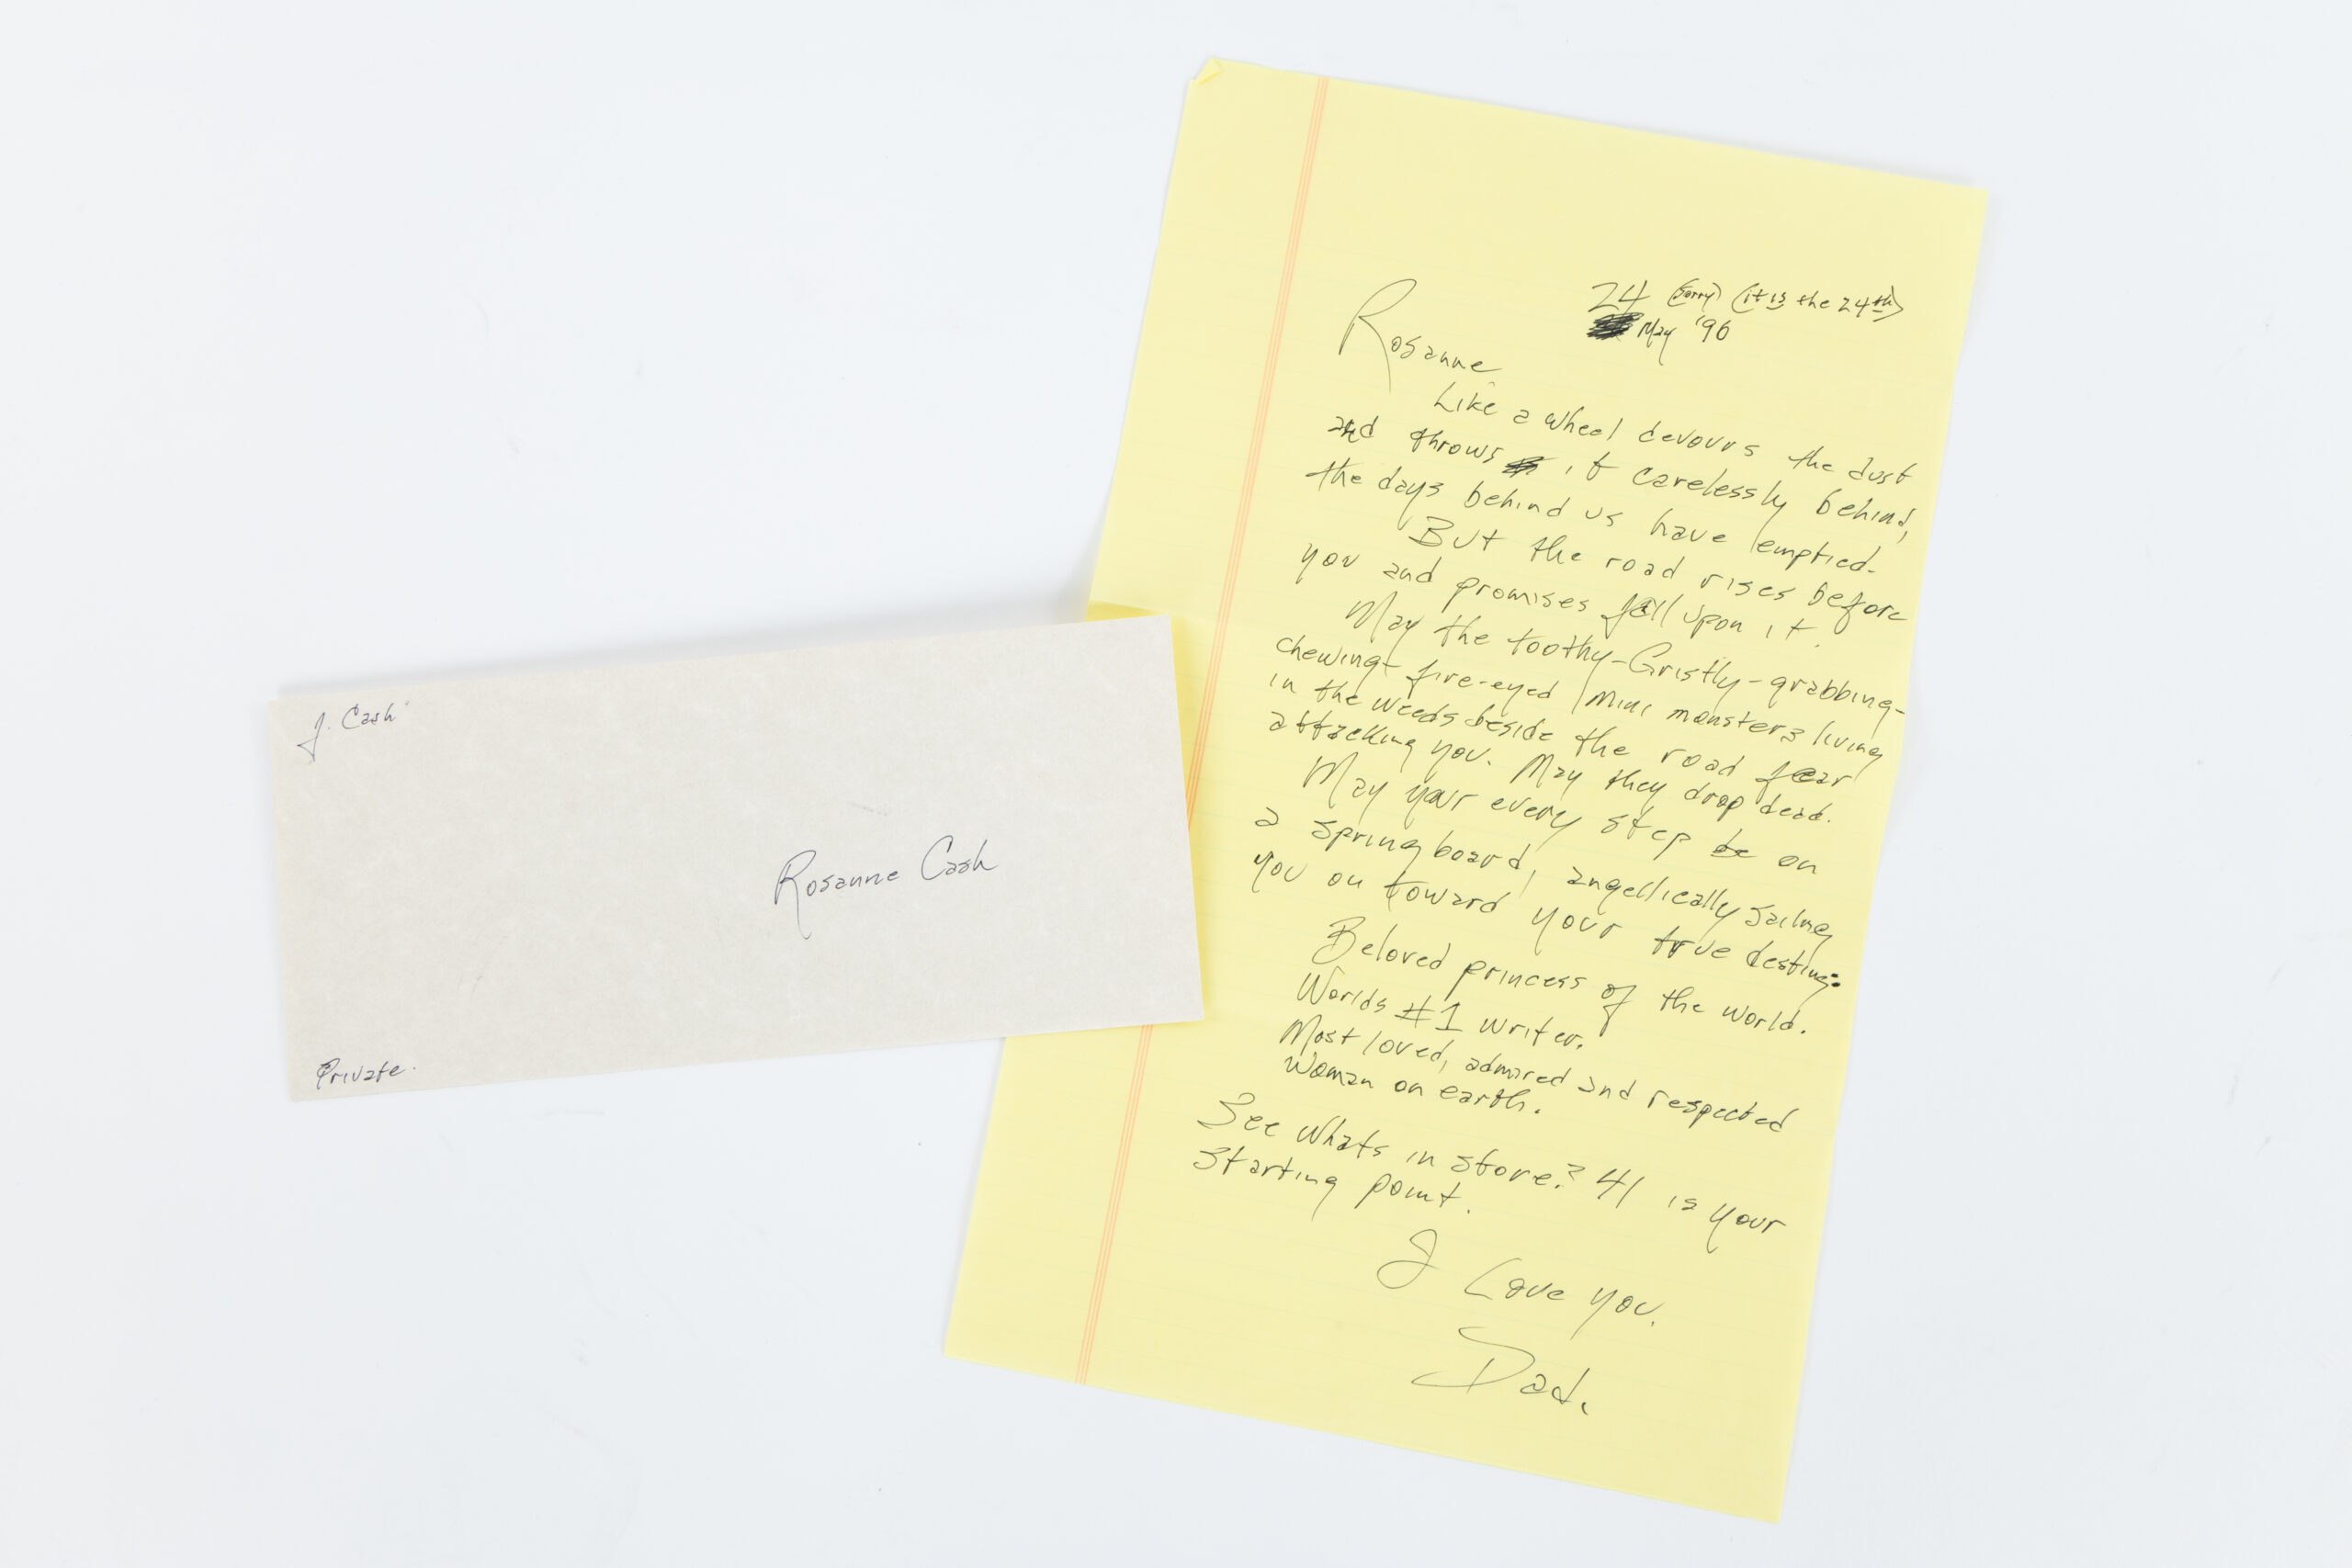 J. Cash
Rosanne Cash
Private.
24 (sorry) (it is the 24th)
May '96
Rosanne
Like a wheel devours the dust
and throws it carelessly behind,
the days behind us have emptied.
But the road rises before
you and promises fall upon it.
May the toothy-Gristly-grabbing-
chewing-fire-eyed mini monsters living
in the weeds beside the road fear
attacking you. May they drop dead.
May your every step be on
a springboard, angellically sailing
you on toward your true destiny:
Beloved princess of the world.
Worlds #1 writer.
Most loved, admired and respected
Woman on earth.
See whats in store? 41 is your
starting point.
I Love you.
Dad.